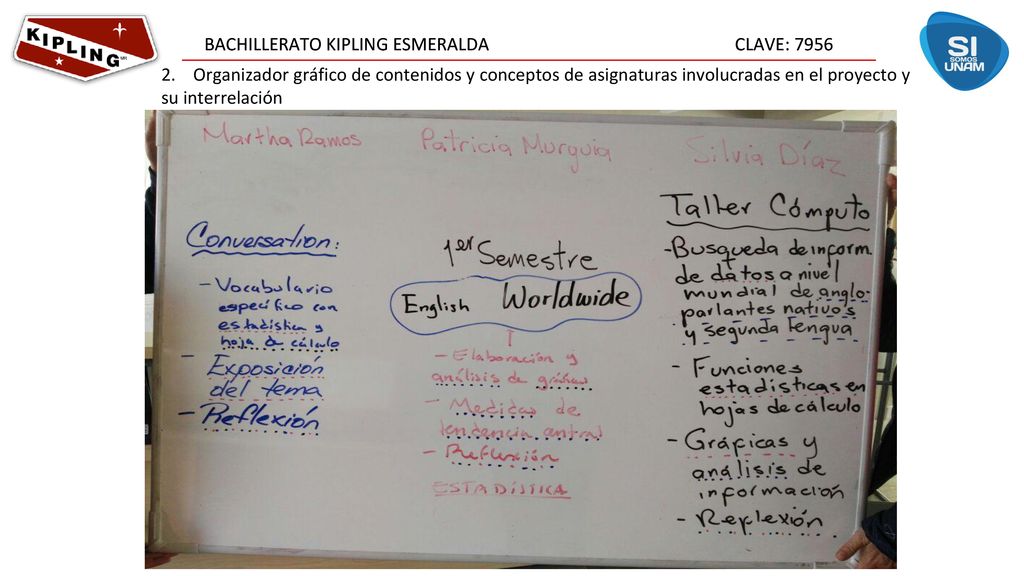 KIPLING
BACHILLERATO KIPLING ESMERALDA
CLAVE: 7956
SI
SOMOS
UNAM
2. Organizador gráfico de contenidos y conceptos de asignaturas involucradas en el proyecto y
su interrelación
Martha Ramos
Patricia Murguia
Silvia Díaz
Conversation:
- Vocabulario
específico con
estadística y
hoja de cálculo
- Exposición
del tema
- Reflexión
1er Semestre
English Worldwide
- Elaboración y
análisis de gráficas
- Medidas de
tendencia central
- Reflexión
ESTADÍSTICA
Taller Cómputo
- Busqueda de inform.
de datos a nivel
mundial de anglo-
parlantes nativos
y segunda lengua
- Funciones
estadísticas en
hojas de cálculo
- Gráficas y
análisis de
información
- Reflexión